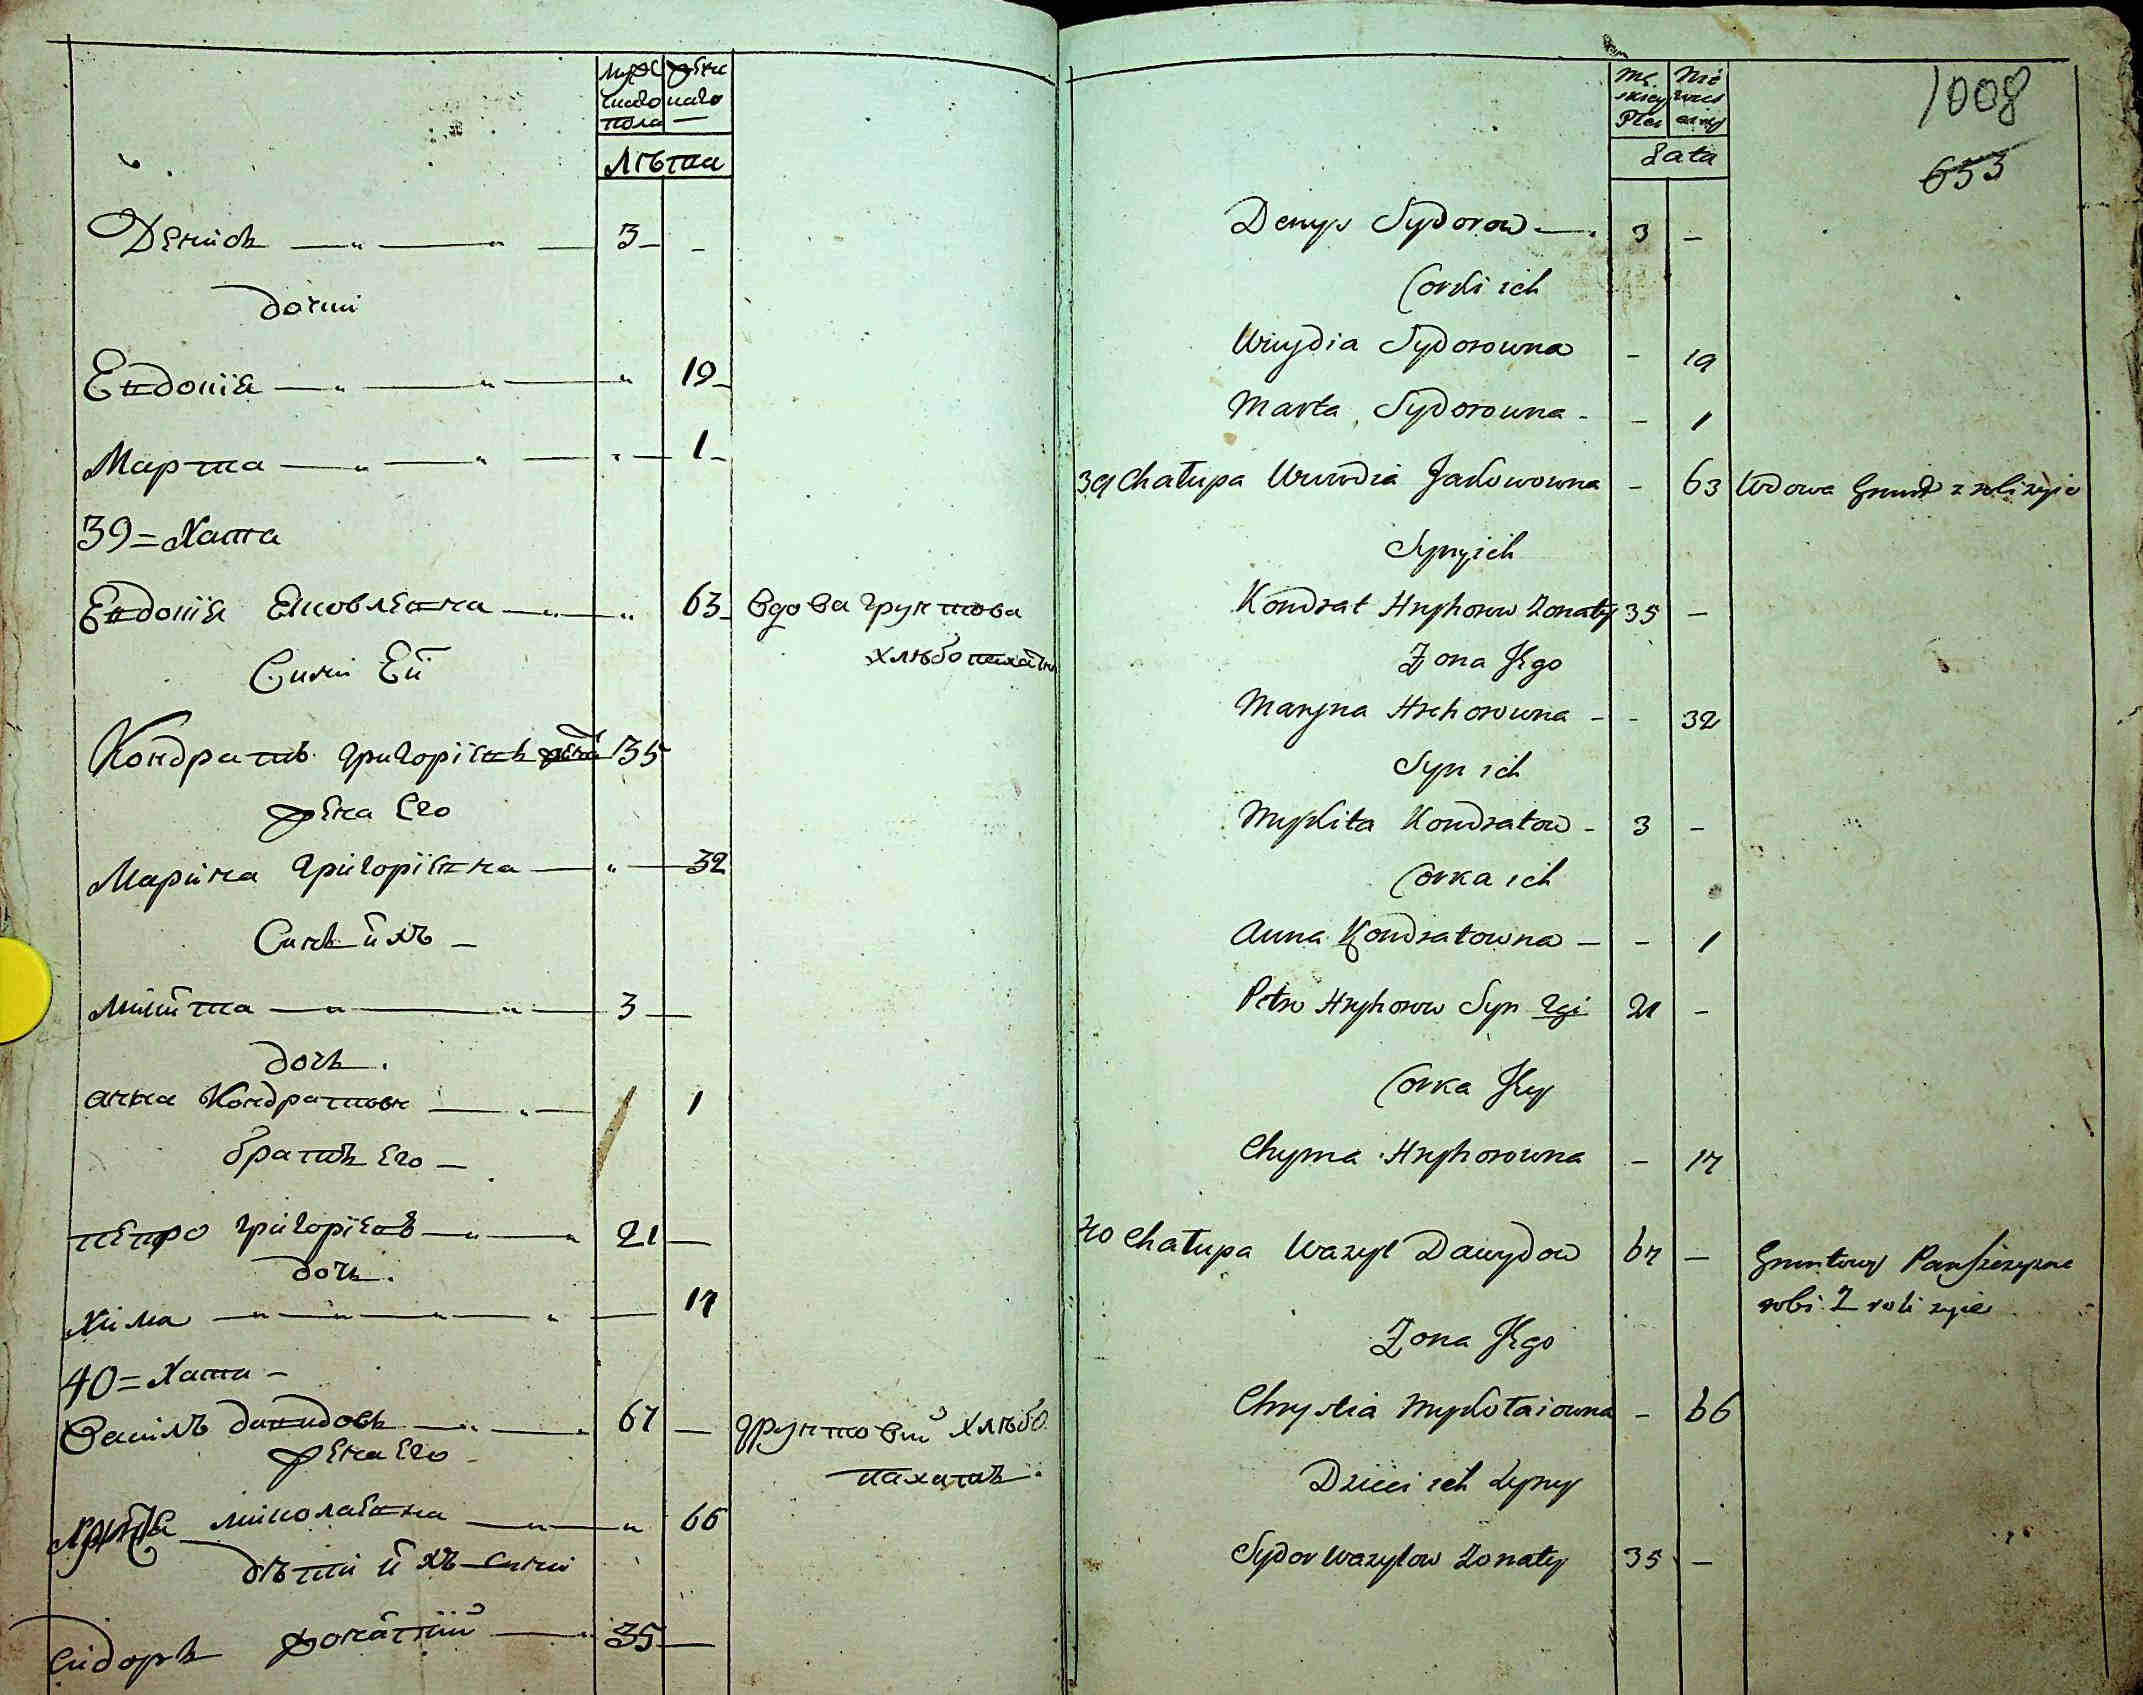 мужеска женска
го пола
Лѣта
Денисъ — „ — „ — 3 — -
дочки
Евдокія — „ — „ — „ 19
Марта — „ — „ — „ — 1
39 = Хата
Евдокія Яковлевна — „ — „ 63 вдова грунтова
хлѣбопахатна
Сини Ей
Кондратъ григоріевъ жена 35
жена Его
Марина григоріевна — „ — 32
Синъ ихъ —
микита — „ — „ — 3 —
дочь.
анна Кондратовн — „ — 1
братъ Его —
петро григоріевъ — „ — „ 21 —
дочь.
хима — „ — „ — „ — 17
40 = хата —
Василъ давидовъ — „ — „ 67 — грунтовий хлѣбо
пахатъ.
жена Его
миколаевна — „ — „ 66
дѣти ихъ сини
Сидоръ жонатий — „ 35 —
Mę Nie
skiey wies
Płci ciey
Lata
1008
653
Denys Sydorow — . 3 —
Corki ich
Sydorowna - 19
Marta Sydorowna - - 1
39 Chałupa Jakowowna - 63 Wdowa Grunt z roli zyie
Syny ich
Kondrat Hryhorow Zonaty 35 —
Zona Jego
Maryna Hrehorowna - - 32
Syn ich
Mykita Kondratow - 3 -
Corka ich
Anna Kondratowna - - 1
Petro Hryhorow Syn 2gi 21 -
Corka Jey
Chyma Hryhorowna - 17
40 Chałupa Wazyl Dawydow 67 — Gruntowy Panszczyzne
robi Z roli zyie
Zona Jego
Mykołaiowna - 66
Dzieci ich Syny
Sydor Wazylow Zonaty 35 —